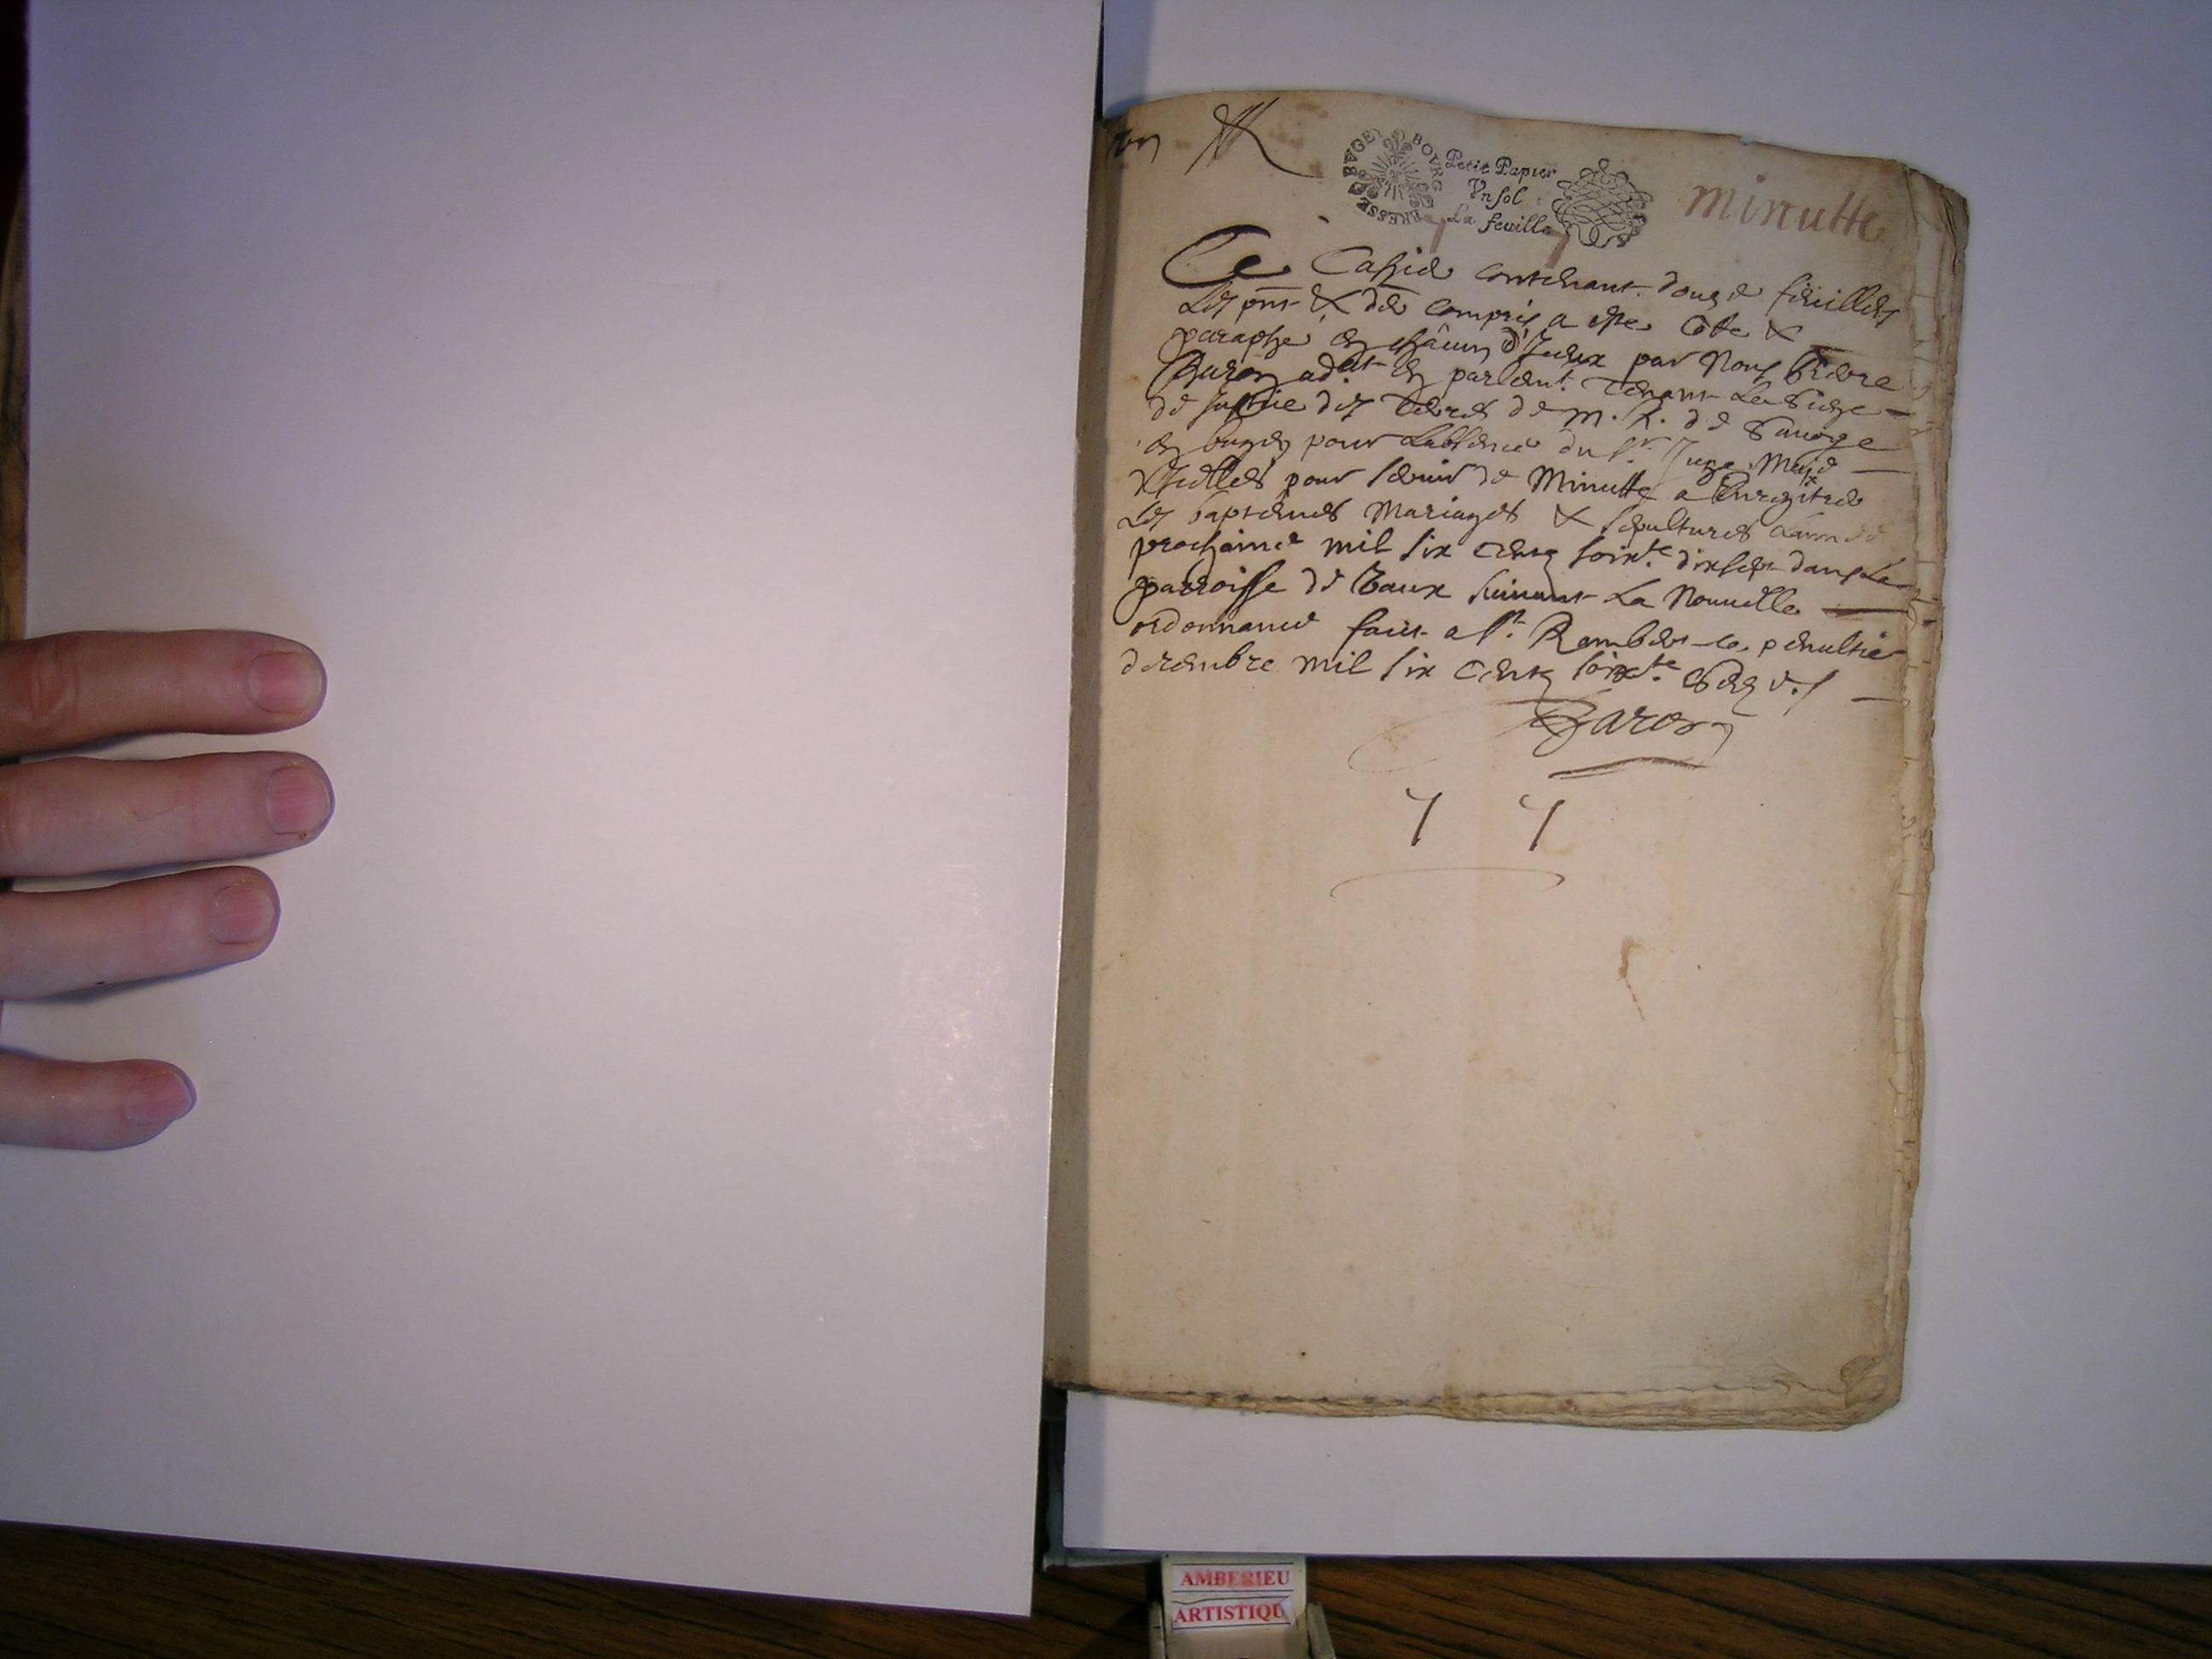 BOVRG BRESSE BVGEY
Petit Papier
Vn sol
La feuille
minutte
Ce Cahier contenant douze feuilles
Les pnr & der compris a este Cote &
paraphé en chacun d'Iceux par Nous Pierre
Baron adat en parlemt. Tenant Le Siege
de Justice des Terres de m. R. de Sauoye
en bugey pour Labsence du Sr. Juge Maje
d'Icelles pour seruir de Minutte a Enregitrer
Les baptemes Mariages & sepultures Lannee
prochaine mil six Centz soixte. dixsept dans La
parroisse de Vaux suiuant La Nouuelle
ordonnance faict a St. Rambert ce penultie
decembre mil six Centz soixte. Seze./
Baron
AMBERIEU
ARTISTIQU